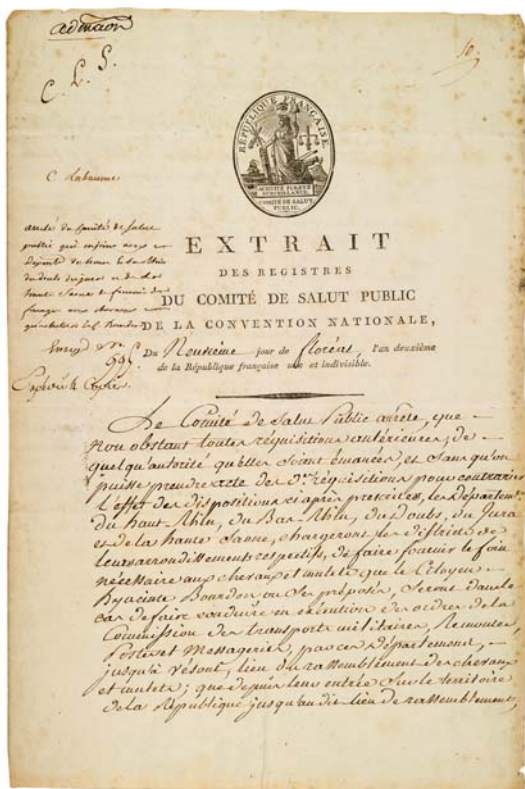 C. L. S.
10.
RÉPUBLIQUE FRANÇAISE.
ACTIVITÉ PURETÉ
SURVEILLANCE.
COMITÉ DE SALUT
PUBLIC.
C Labaume
arrêté du Comité de Salut
public qui
du doubs du jura et de la
haute Saone de fournir des
fourages aux chevaux
EXTRAIT
DES REGISTRES
DU COMITÉ DE SALUT PUBLIC
DE LA CONVENTION NATIONALE,
Du Neuvieme jour de floréal, l'an deuxième
de la République française une et indivisible.
Le Comité de Salut Public arrête, que
non obstant toutes réquisitions antérieures, de
quelqu'autorité qu'elles soient émanées, et sans qu'on
puisse prendre acte des des réquisitions pour contrarier
l'effet des dispositions ci après précisées, les Départemts
du haut-Rhin, du Bas-Rhin, du Doubs, du Jura
et de la haute Saone, chargeront les districts de
leurs arrondissements respectifs, de faire fournir le foin
nécessaire aux chevaux et mulets que le Citoyen
Hyacinte Bourdon ou ses préposés, seront dans le
cas de faire conduire en exécution des ordres de la
Commission des transports militaires, Remontes,
Postes et Messageries, par ces départemens,
jusqu'à Vésoul, lieu du rassemblement des chevaux
et mulets; que depuis leur entrée sur le territoire
de la République jusqu'au dit lieu de rassemblement,